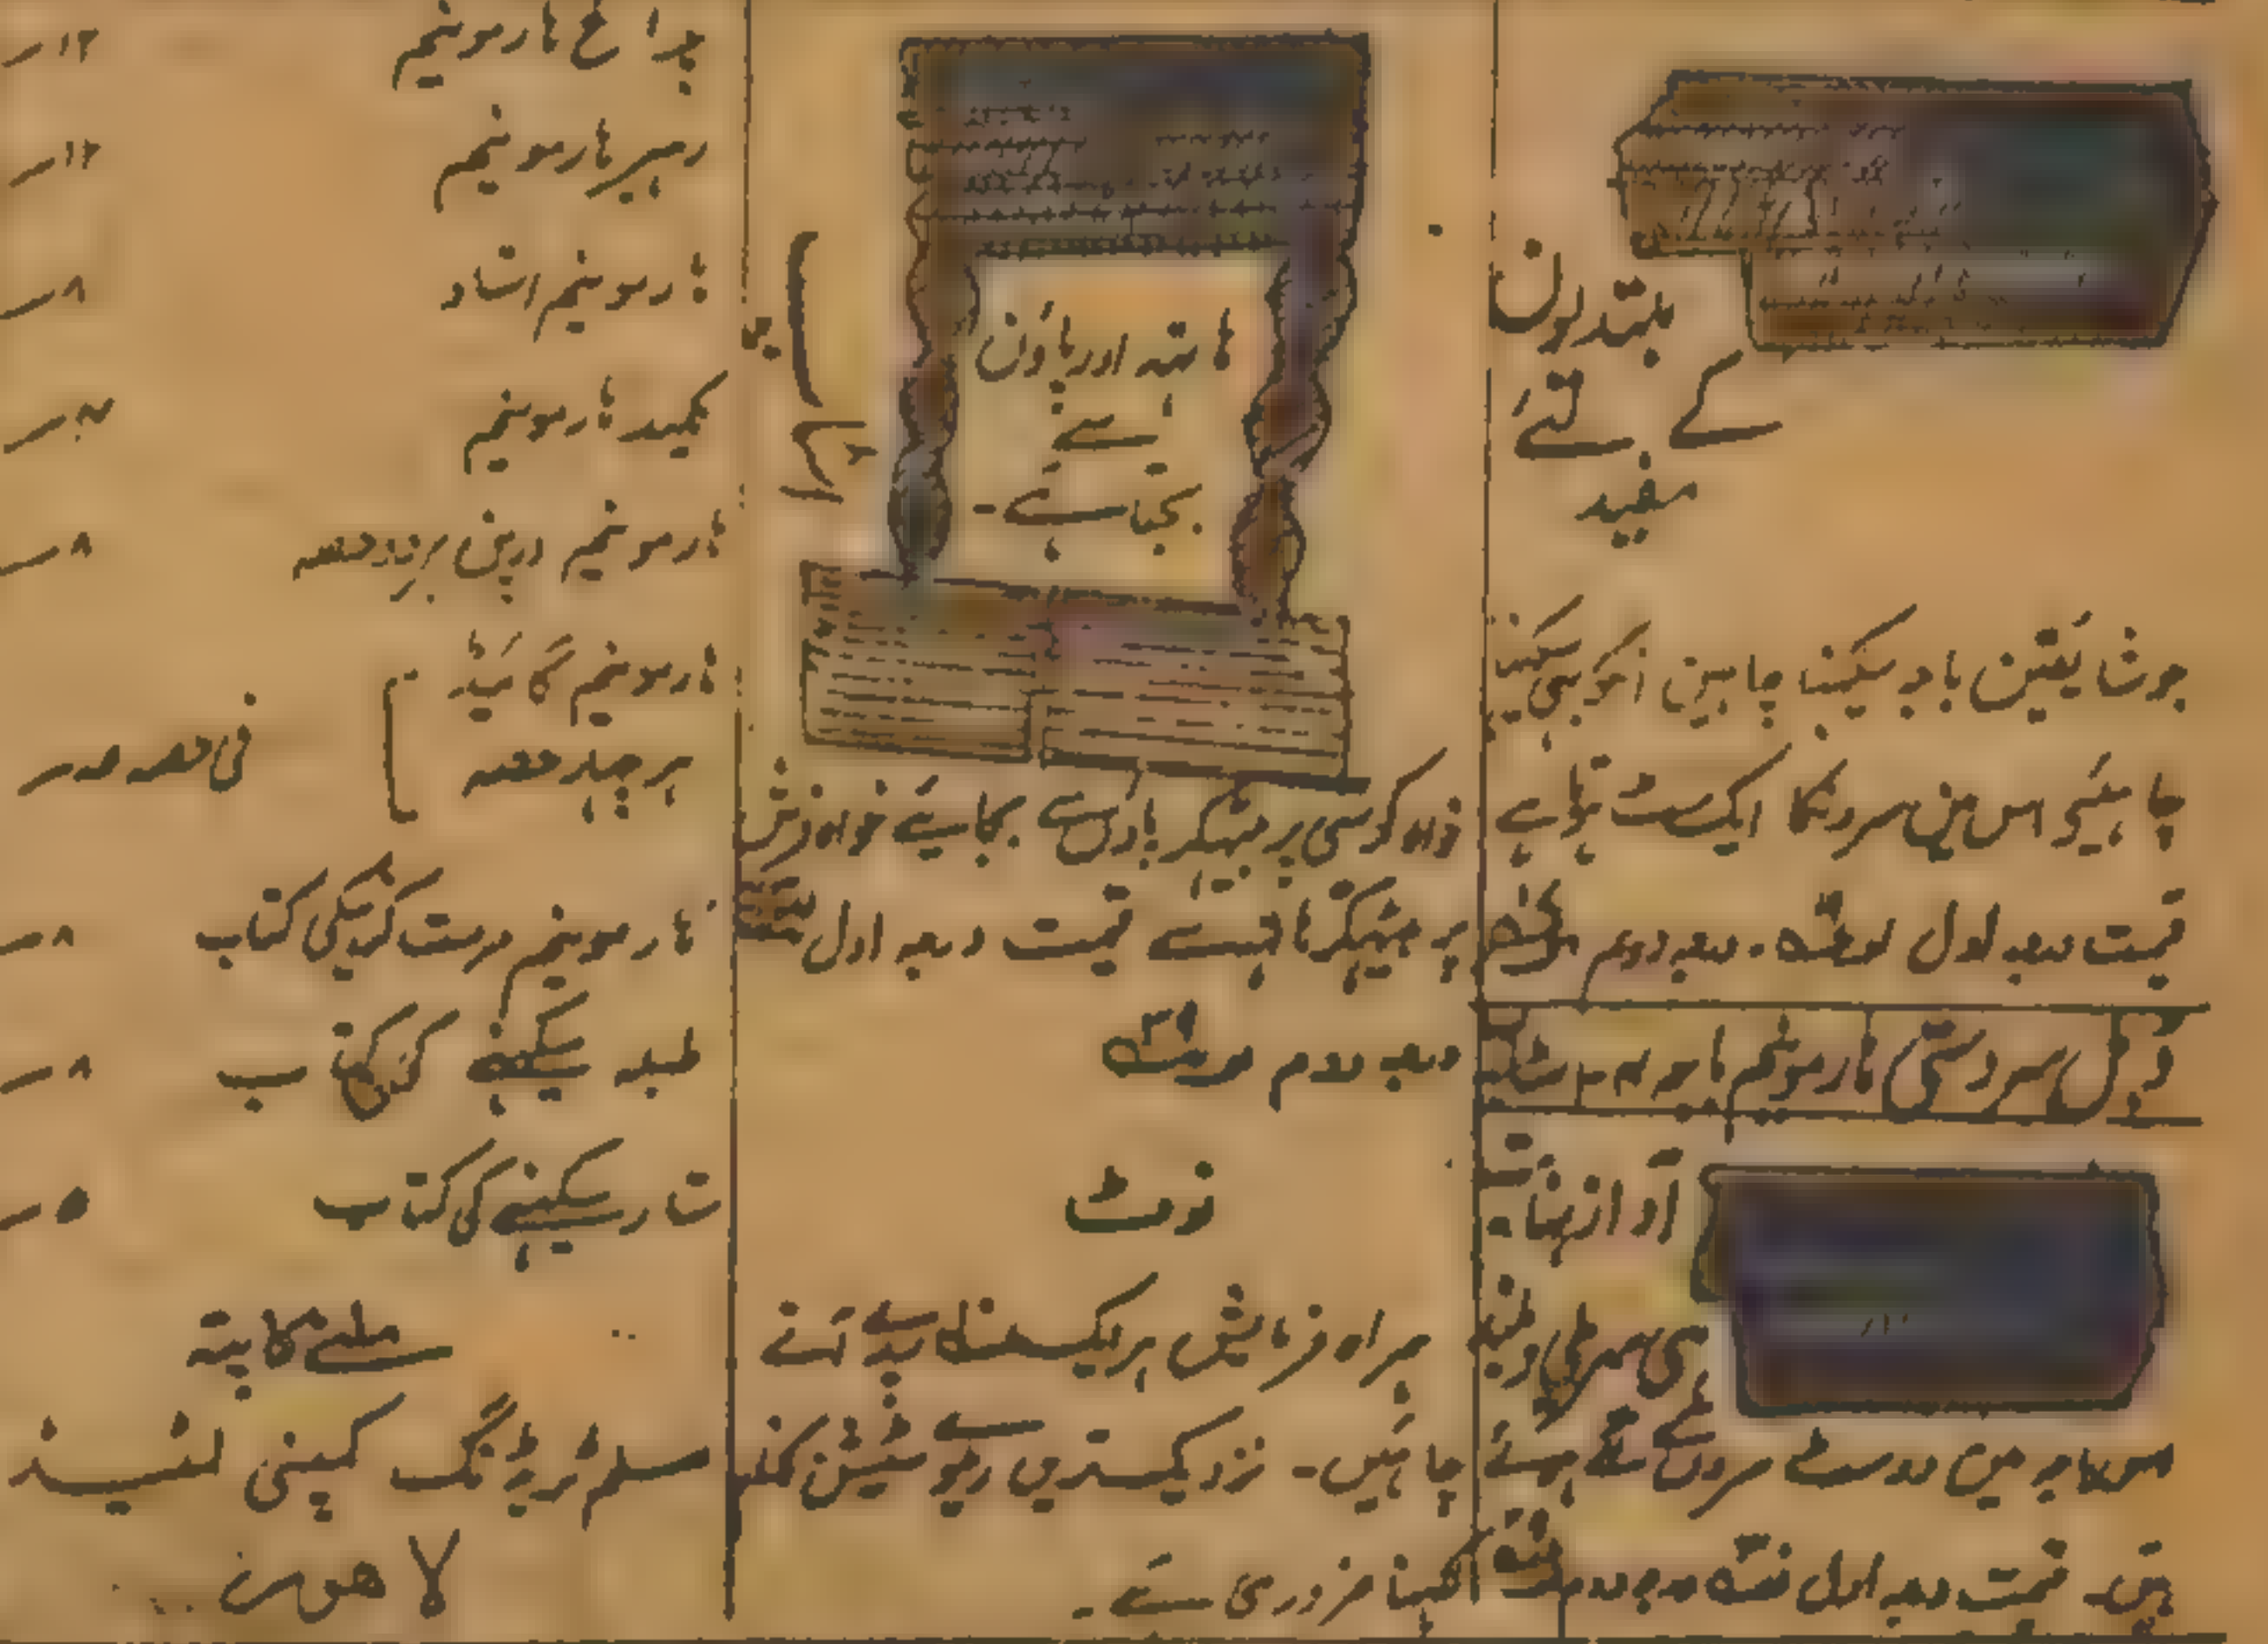 مبتدیوں
کے لئے
مفید
جو شائقین باجہ سیکھنا چاہیں انکو یہی
چاہئیے اس میں سرونکا ایک سٹ ہوتا ہے
قیمت درجہ اول درجہ دوم
ڈبل سر دستی ہارمونیم باجہ
آواز نہایت
ہی سریلی
اس باجہ میں دوسٹ سروں کے لگے ہوئے
ہیں۔ قیمت درجہ اول درجہ دوم
ہاتھ اور پاؤں
سے
بجتا ہے۔
خواہ کرسی پر بیٹھکر پاؤں سے بجائیے خواہ فرش
پر بیٹھکر ہاتھ سے قیمت درجہ اول
درجہ دوم
نوٹ
ہمراہ فرمائش ہر ایک
چاہئیں۔ نزدیکترین ریلوے سٹیشن
لکھنا ضروری ہے۔
چراغ ہارمونیم ۱۲؍
رہبر ہارمونیم ۱۲؍
ہارمونیم استاد ۸؍
کلید ہارمونیم
ہارمونیم درپن ہر دو حصہ ۸؍
ہارمونیم گائیڈ
ہر چہار حصہ فی حصہ
ہارمونیم مرمت کرنیکی کتاب ۸؍
طبلہ سیکھنے کی کتاب ۸؍
ستار سیکھنے کی کتاب ۵؍
ملنے کا پتہ
مسلم ٹریڈنگ کمپنی لمیٹیڈ
لاہور